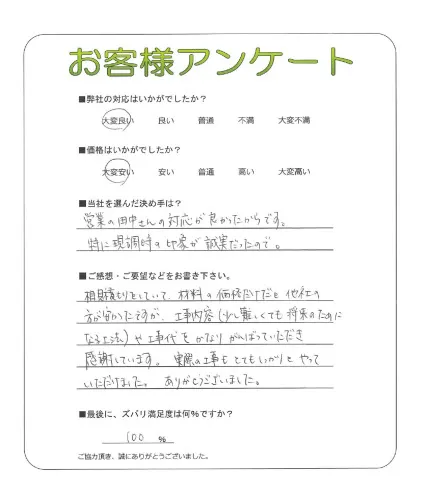 お客様アンケート
■弊社の対応はいかがでしたか？
大変良い 良い 普通 不満 大変不満
■価格はいかがでしたか？
大変安い 安い 普通 高い 大変高い
■当社を選んだ決め手は？
営業の田中さんの対応が良かったからです。
特に現調時の印象が誠実だったので。
■ご感想・ご要望などをお書き下さい。
相見積りをしていて、材料の価格だけだと他社の
方が安かったですが、工事内容(少し難しくても将来のために
なる工法)や工事代をかなりがんばっていただき
感謝しています。実際の工事もとてもしっかりとやって
いただけました。ありがとうございました。
■最後に、ズバリ満足度は何％ですか？
100 %
ご協力頂き、誠にありがとうございました。